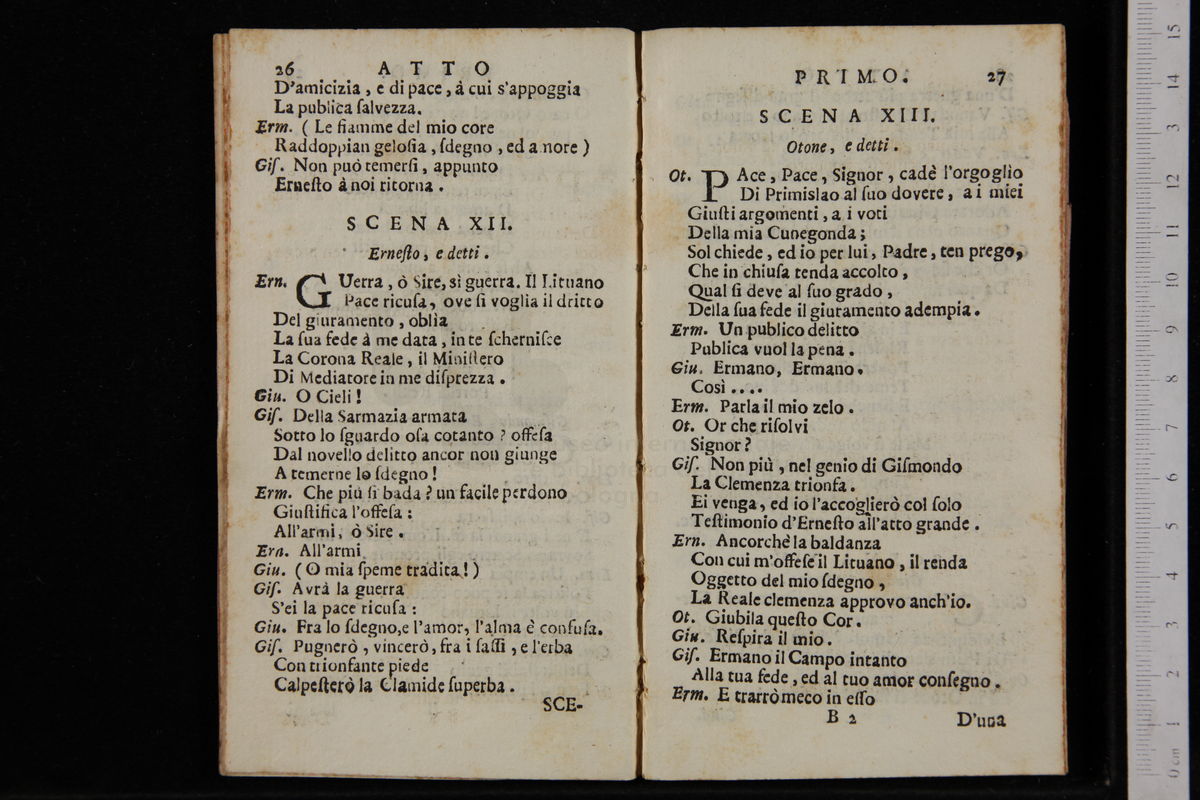 26 ATTO
D'amicizia, e di pace, à cui s'appoggia
La publica ſalvezza.
Erm. ( Le fiamme del mio core
Raddoppian geloſia, ſdegno, ed amore )
Giſ. Non può temerſi, appunto
Erneſto à noi ritorna.
SCENA XII.
Erneſto, e detti.
Ern. GUerra, ò Sire, sì guerra. Il Lituano
Pace ricuſa, ove ſi voglia il dritto
Del giuramento, oblìa
La ſua fede à me data, in te ſcherniſce
La Corona Reale, il Miniſtero
Di Mediatore in me diſprezza.
Giu. O Cieli!
Giſ. Della Sarmazia armata
Sotto lo ſguardo oſa cotanto? offeſa
Dal novello delitto ancor non giunge
A temerne lo ſdegno!
Erm. Che più ſi bada? un facile perdono
Giuſtifica l'offeſa:
All'armi, ò Sire.
Ern. All'armi
Giu. (O mia ſpeme tradita!)
Giſ. Avrà la guerra
S'ei la pace ricuſa:
Giu. Fra lo ſdegno,e l'amor, l'alma è confuſa.
Giſ. Pugnerò, vincerò, fra i ſaſſi, e l'erba
Con trionfante piede
Calpeſterò la Clamide ſuperba.
SCE-
PRIMO. 27
SCENA XIII.
Otone, e detti.
Ot. PAce, Pace, Signor, cadè l'orgoglio
Di Primislao al ſuo dovere, a i miei
Giuſti argomenti, a i voti
Della mia Cunegonda;
Sol chiede, ed io per lui, Padre, ten prego,
Che in chiuſa tenda accolto,
Qual ſi deve al ſuo grado,
Della ſua fede il giuramento adempia.
Erm. Un publico delitto
Publica vuol la pena.
Giu. Ermano, Ermano.
Così ....
Erm. Parla il mio zelo.
Ot. Or che riſolvi
Signor?
Giſ. Non più, nel genio di Giſmondo
La Clemenza trionfa.
Ei venga, ed io l'accoglierò col ſolo
Teſtimonio d'Erneſto all'atto grande.
Ern. Ancorchè la baldanza
Con cui m'offeſe il Lituano, il renda
Oggetto del mio ſdegno,
La Reale clemenza approvo anch'io.
Ot. Giubila queſto Cor.
Giu. Reſpira il mio.
Giſ. Ermano il Campo intanto
Alla tua fede, ed al tuo amor conſegno.
Erm. E trarrò meco in eſſo
B 2 D'una
0 cm 1 2 3 4 5 6 7 8 9 10 11 12 13 14 15